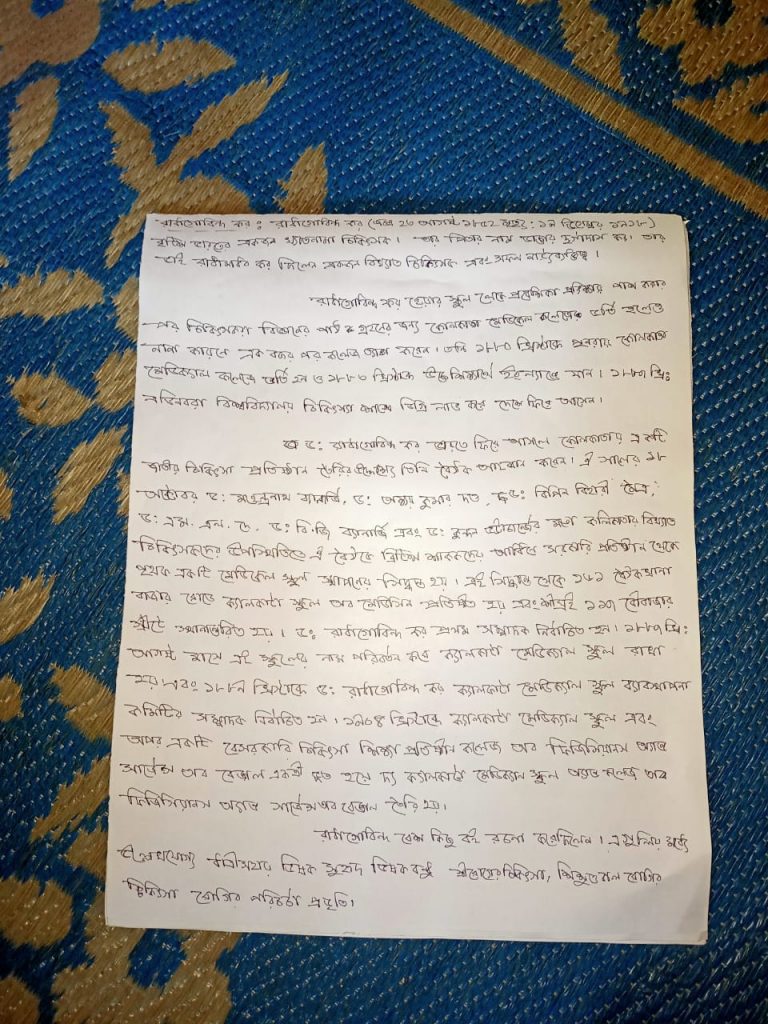 রাধাগোবিন্দ কর : রাধাগোবিন্দ কর (জন্ম ২৩ আগস্ট ১৮৫২ মৃত্যু : ১৯ ডিসেম্বর ১৯১৮)
ব্রিটিশ ভারতের একজন খ্যাতনামা চিকিৎসক। তার পিতার নাম ডাক্তার দুর্গাদাস কর। তার
ভাই রাধামাধব কর ছিলেন একজন বিখ্যাত চিকিৎসক এবং সফল নাট্যব্যক্তিত্ব।
রাধাগোবিন্দ কর হেয়ার স্কুল থেকে প্রবেশিকা পরীক্ষায় পাশ করার
পর চিকিৎসা বিজ্ঞানের পাঠ গ্রহনের জন্য কোলকাতা মেডিকেল কলেজে ভর্তি হলেও
নানা কারণে এক বছর পর কলেজ ত্যাগ করেন। তিনি ১৮৮০ খ্রিস্টাব্দে পুনরায় কোলকাতা
মেডিক্যাল কলেজে ভর্তি হন ও ১৮৮৩ খ্রিস্টাব্দে উচ্চশিক্ষার্থে ইংল্যান্ডে যান। ১৮৮৭ খ্রিঃ
এডিনবরা বিশ্ববিদ্যালয় চিকিৎসা শাস্ত্রে ডিগ্রি লাভ করে দেশে ফিরে আসেন।
ডঃ রাধাগোবিন্দ কর ভারতে ফিরে আসলে কোলকাতায় একটি
জাতীয় চিকিৎসা প্রতিষ্ঠান তৈরির উদ্দেশ্যে তিনি বৈঠক আহ্বান করেন। ঐ সালের ১৮
অক্টোবর ডঃ মহেন্দ্রনাথ ব্যানার্জি, ডঃ অক্ষয় কুমার দত্ত, ডঃ বিপিন বিহারী মৈত্র,
ডঃ এম. এল. দে, ডঃ বি.জি ব্যানার্জি এবং ডঃ কুন্দন ভট্টাচার্যের মতো কলিকাতার বিখ্যাত
চিকিৎসকদের উপস্থিতিতে ঐ বৈঠকে ব্রিটিশ শাসকদের আর্থিক সরকারি প্রতিষ্ঠান থেকে
পৃথক একটি মেডিকেল স্কুল স্থাপনের সিদ্ধান্ত হয়। এই সিদ্ধান্ত থেকে ১৬১ বৈঠকখানা
বাজার রোডে ক্যালকাটা স্কুল অব মেডিসিন প্রতিষ্ঠিত হয় এবং শীঘ্রই ১১৭ বৌবাজার
স্ট্রীটে স্থানান্তরিত হয়। ডঃ রাধাগোবিন্দ কর প্রথম সম্পাদক নির্বাচিত হন। ১৮৮৭ খ্রিঃ
আগস্ট মাসে এই স্কুলের নাম পরিবর্তন করে ক্যালকাটা মেডিক্যাল স্কুল রাখা
হয় এবং ১৮৮৯ খ্রিস্টাব্দে ডঃ রাধাগোবিন্দ কর ক্যালকাটা মেডিক্যাল স্কুল ব্যাবস্থাপনা
কমিটির সম্পাদক নির্বাচিত হন। ১৯০৪ খ্রিস্টাব্দে ক্যালকাটা মেডিক্যাল স্কুল এবং
অপর একটি বেসরকারি চিকিৎসা শিক্ষা প্রতিষ্ঠান কলেজ অব ফিজিসিয়ানস অ্যান্ড
সার্জেন্স অব বেঙ্গল একত্রীভূত হয়ে দ্য ক্যালকাটা মেডিক্যাল স্কুল অ্যান্ড কলেজ অব
ফিজিসিয়ানস অ্যান্ড সার্জেন্স অব বেঙ্গল তৈরি হয়।
রাধাগোবিন্দ বেশ কিছু বই রচনা করেছিলেন। এগুলির মধ্যে
উল্লেখযোগ্য ধাত্রীসহায় ভিষক সুহৃদ ভিষক বন্ধু স্ত্রীরোগের চিকিৎসা,
চিকিৎসা রোগির পরিচর্যা প্রভৃতি।